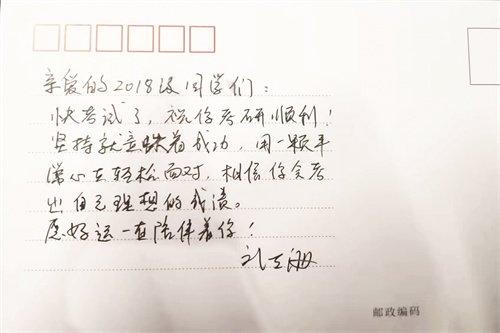 亲爱的2018级同学们：
快考试了，祝你考研顺利！
坚持就意味着成功，用一颗平
常心在轻松面对，相信你会考
出自己理想的成绩。
愿好运一直陪伴着你！
邮政编码